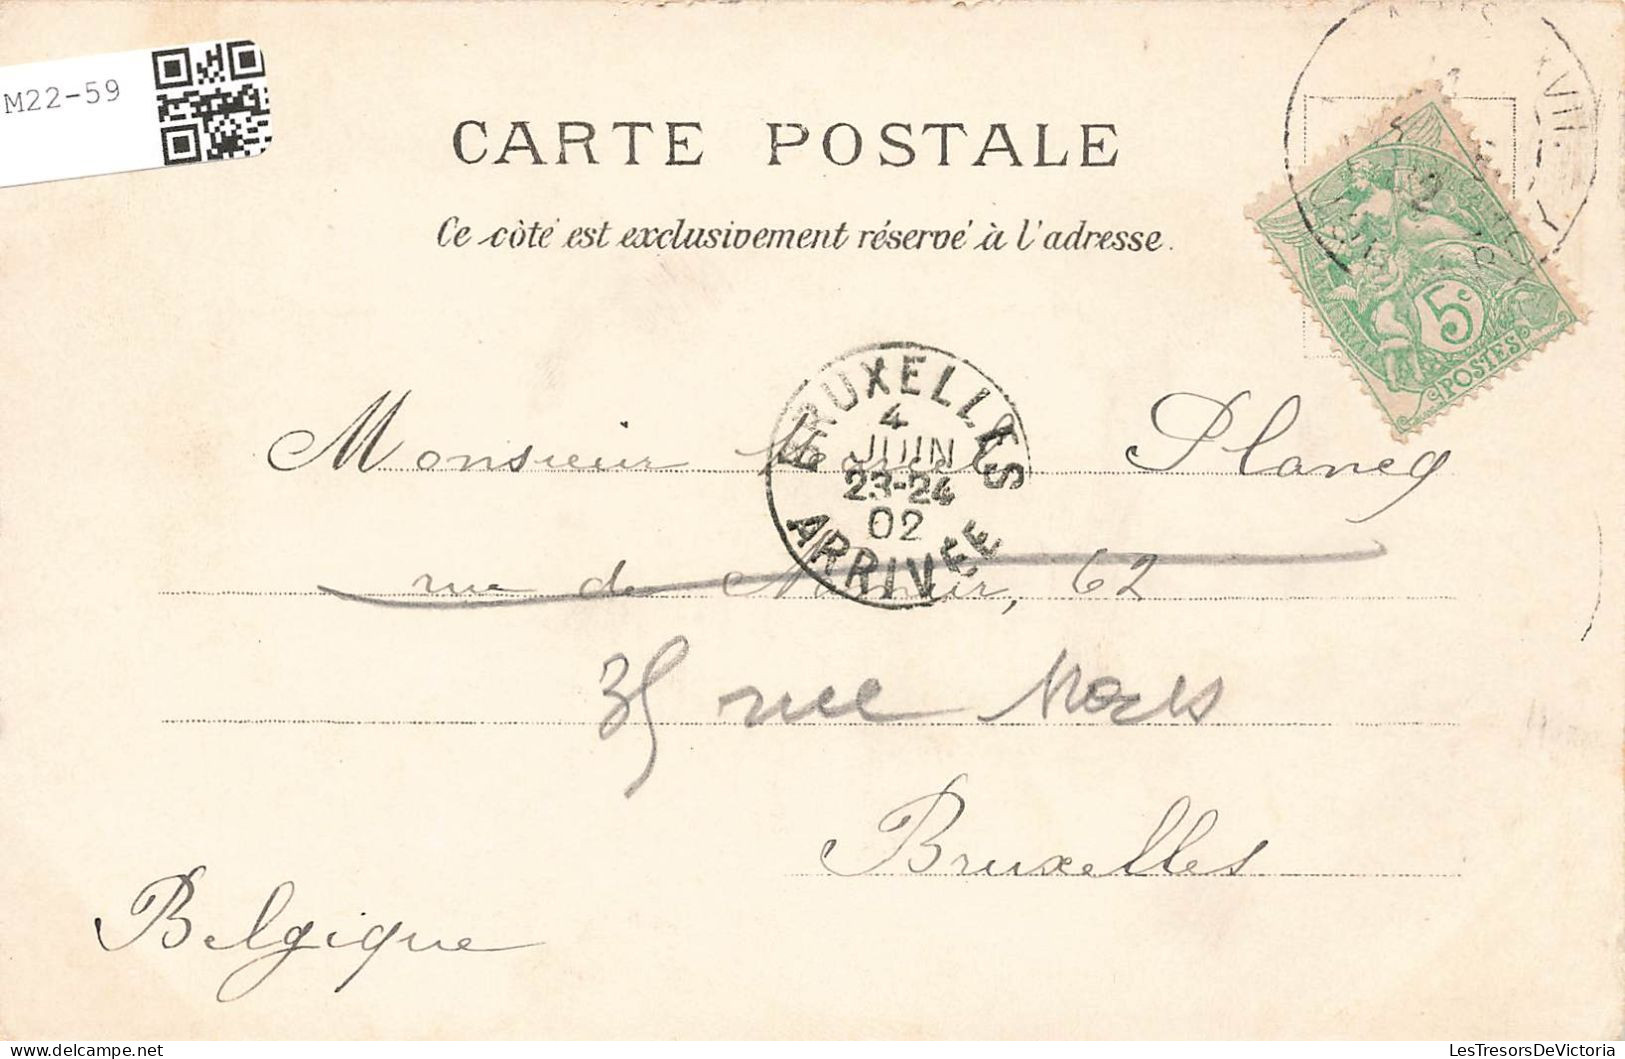 M22-59
CARTE POSTALE
Ce côté est exclusivement réservé à l'adresse.
5c
POSTES
BRUXELLES
4
JUIN
23-24
02
ARRIVEE
Monsieur Plancq
rue de Namur, 62
35 rue
Bruxelles
Belgique
LesTresorsDeVictoria